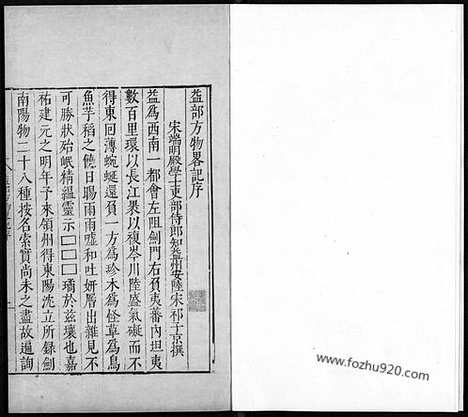 益部方物畧記序
宋端明殿學士吏部侍郎知益州安陸宋祁子京撰
益為西南一都會左阻劍門右負夷蕃內坦夷
數百里環以長江裹以複岑川陸盛氣礙而不
得東回薄蜿蜒還負一方為珍木為怪草為鳥
魚芋稻之饒日暘雨雨噓和吐妍層出雜見不
可勝狀殆岷精溫靈示□□□璚於茲壤也嘉
祐建元之明年予來領州得東陽沈立所錄劍
南陽物二十八種按名索實尚未之盡故遍詢
www.fozhu920.com